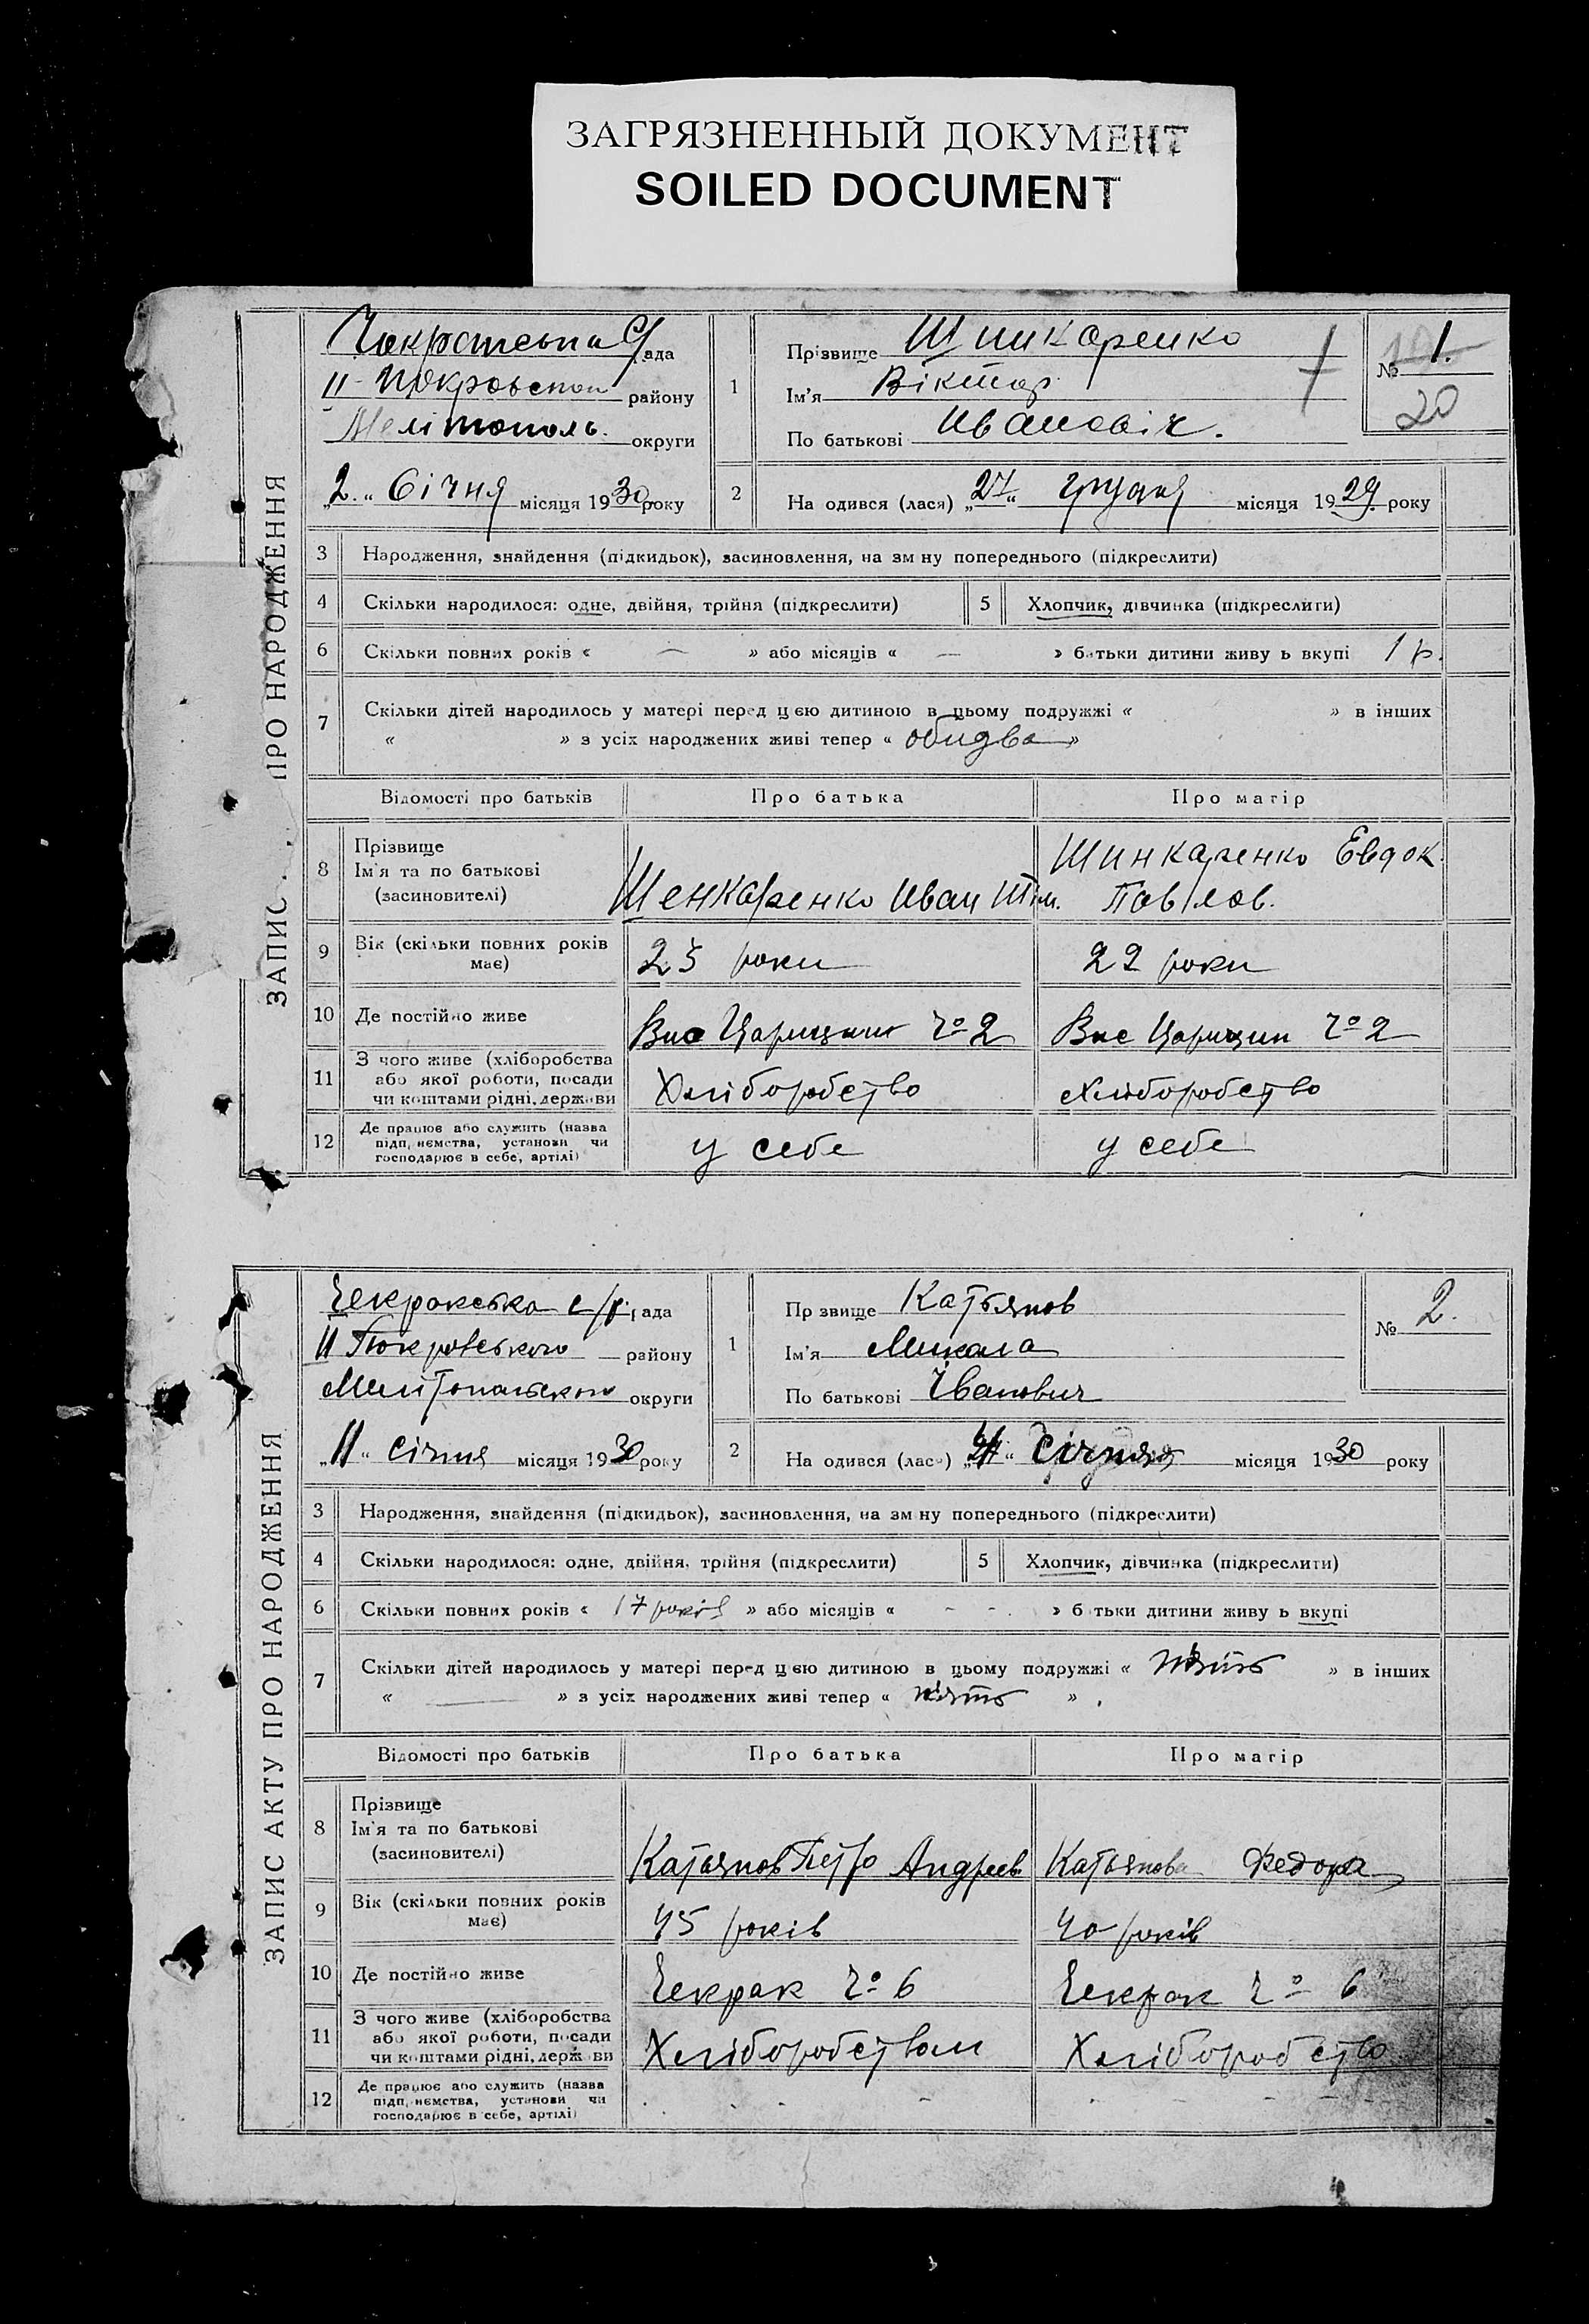 ЗАГРЯЗНЕННЫЙ ДОКУМЕНТ
SOILED DOCUMENT
ЗАПИС ПРО НАРОДЖЕННЯ
рада
II Покровськ району
Мелітополь. округи
„2.“ Січня місяця 1930 року
1
Прізвище Шинкаренко
Ім'я Віктор
По батькові Іванович.
№ 1.
20
2
На одився (лася) „27“ грудня місяця 1929 року
3 Народження, знайдення (підкидьок), засиновлення, на зм ну попереднього (підкреслити)
4 Скільки народилося: одне, двійня, трійня (підкреслити) 5 Хлопчик, дівчинка (підкреслити)
6 Скільки повних років « — » або місяців « — » батьки дитини живу ь вкупі 1 р.
7 Скільки дітей народилось у матері перед цією дитиною в цьому подружжі « » в інших
« » з усіх народжених живі тепер « обидва »
Відомості про батьків Про батька Про матір
8 Прізвище
Ім'я та по батькові
(засиновителі)
Шенкаренко Иван Тім.
Шинкаренко Евдок.
Павлов.
9 Вік (скільки повних років має) 25 роки 22 роки
10 Де постійно живе Вис Царицин ч° 2 Вис Царицин ч° 2
11 З чого живе (хліборобства
або якої роботи, посади
чи коштами рідні, держави
Хліборобство Хліборобство
12 Де працює або служить (назва
підп, немства, установи чи
господарює в себе, артілі)
у себе у себе
ЗАПИС АКТУ ПРО НАРОДЖЕННЯ
Чекракська с/р рада
II Покровського району
Мелітопольскои округи
„11“ січня місяця 1930 року
1
Пр звище Катьянов
Ім'я Микола
По батькові Іванович
№ 2.
2
На одився (лась) січня місяця 1930 року
3 Народження, знайдення (підкидьок), засиновлення, на зм ну попереднього (підкреслити)
4 Скільки народилося: одне, двійня, трійня (підкреслити) 5 Хлопчик, дівчинка (підкреслити)
6 Скільки повних років « 17 років » або місяців « - - . » б тьки дитини живу ь вкупі
7 Скільки дітей народилось у матері перед цією дитиною в цьому подружжі « пять » в інших
« — » з усіх народжених живі тепер « пять » .
Відомості про батьків Про батька Про матір
8 Прізвище
Ім'я та по батькові
(засиновителі)
Катьянов Петро Андреев Катьянова Федора
9 Вік (скільки повних років має) 45 років 40 років
10 Де постійно живе Чекрак ч° 6 Чекрак ч° 6
11 З чого живе (хліборобства
або якої роботи, посади
чи коштами рідні, держ ви
Хліборобством Хліборобство
12 Де працює або служить (назва
підп, немства, установи чи
господарює в себе, артілі)